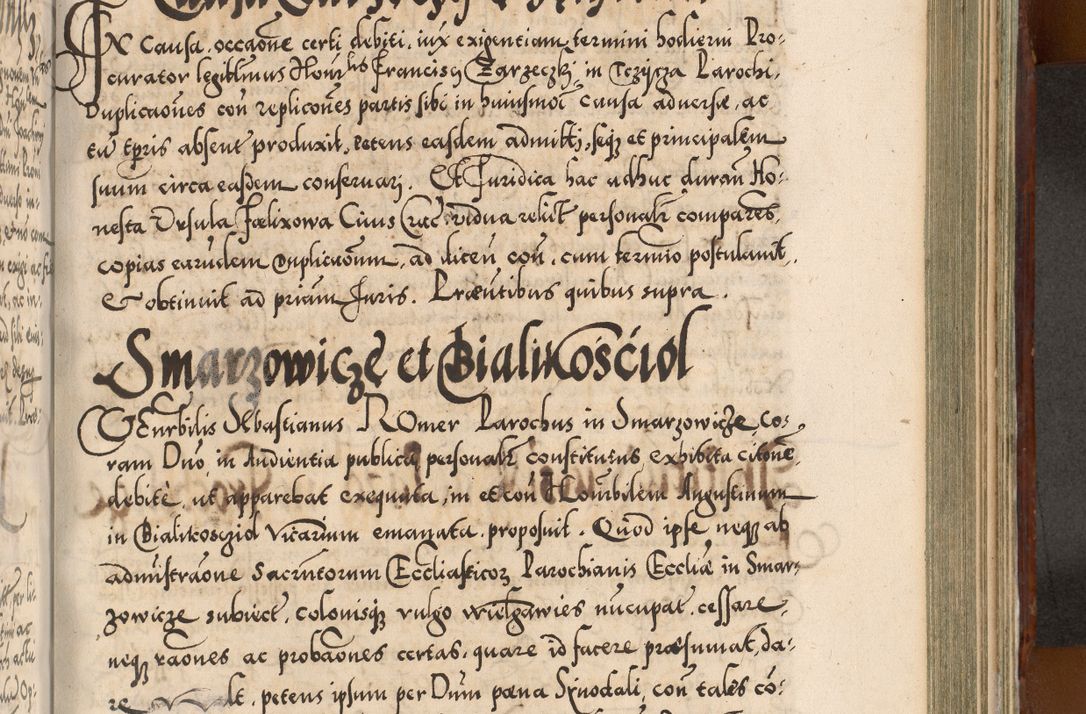 In Causa, occaõne certi debiti, iux exigentiam termini hodierni Pro-
curator legittimus Honor. Francisci Zarzeczki in Tczycza Parochi,
Duplicaõnes con replicões partis sibi in huiusmoi Causa adversę, ac
tũ tpris absent produxit, petens easdem admitti, seqz et principalem
suum circa easdem conservari. Et Juridica hac adhuc durañ Ho-
nesta Vrsula Fœlixowa Civis Crac. vidua relict personałr compares,
copias earũdem duplicaonum, ad dicen con, cum termino postulavit,
& obtinuit ad primam Juris. Præntibus quibus supra.
Smarzowicze et Bialikościol
Venrbilis Sebastianus Römer Parochus in Smarzowicze, co-
ram Dño in Audientia publica personałr constitutus exhibita citõne
debitè, ut apparebat exequuta, in et con Honorbilem Augustinum
in Bialikoscziol Vicarium emanata proposuit. Quod ipse neqz ab
admistraõne Sacrmtorum Ecclesiasticoz Parochianis Eccliæ in Smar-
zowicze subiect, colonisqz vulgo wielgawies nũcupat. cessare,
neqz raões ac probaões certas, quare id facere præsumat, da-
re lt, petens ipsum per Dñm pœna Synodali, con tales cō-